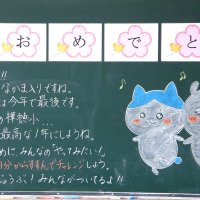 おめでと
!!
なかま入りですね。
は今年で最後です。
の禅穂小…
最高な1年にしようね。
めに、みんなの"やってみたい!。
自分からすすんでチャレンジしよう。
じょうぶ!みんながついてるよ!!